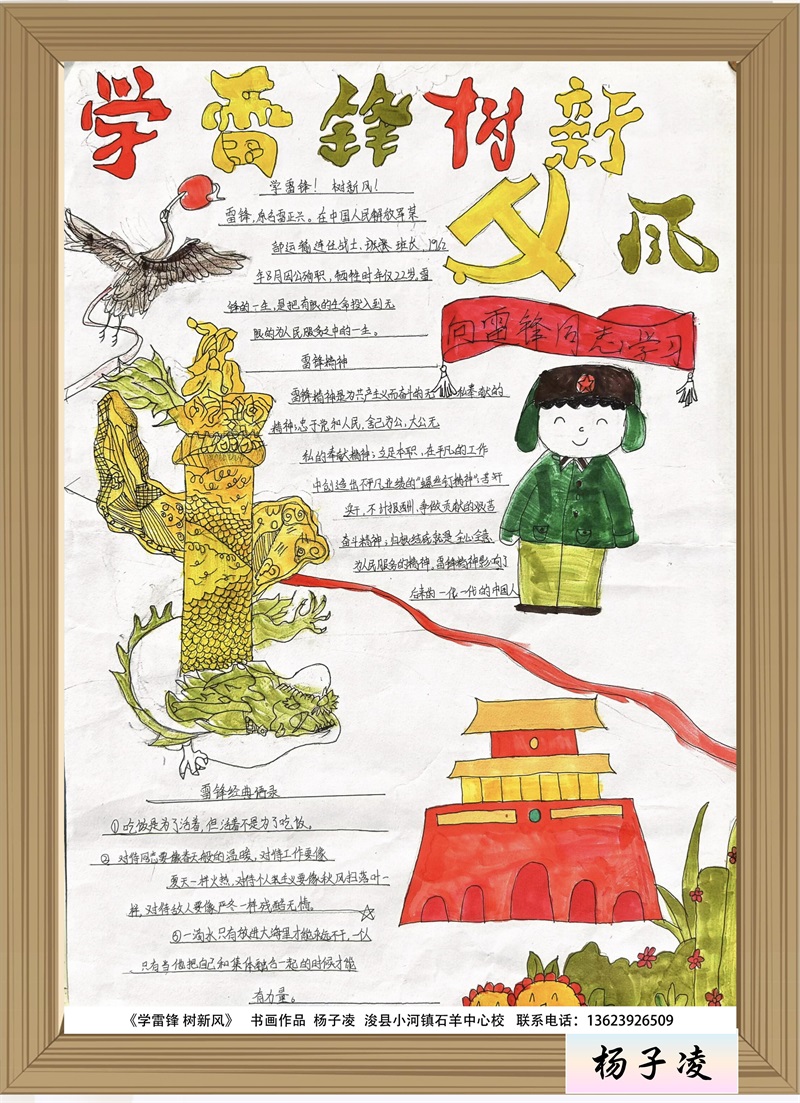 学雷锋树新
风
学雷锋！树新风！
雷锋，原名雷正兴。在中国人民解放军某
部运输连任战士、班长，1962
年8月因公殉职，牺牲时年仅22岁，雷
锋的一生，是把有限的生命投入到无
限的为人民服务之中的一生。
向雷锋同志学习
雷锋精神
雷锋精神是为共产主义而奋斗的无私奉献的
精神；忠于党和人民，舍己为公，大公无
私的奉献精神；立足本职，在平凡的工作
中创造出不平凡业绩的“螺丝钉精神”；苦干
实干，不计报酬，争做贡献的艰苦
奋斗精神；归根结底就是全心全意
为人民服务的精神。雷锋精神影响了
后来的一代一代的中国人
雷锋经典语录
①吃饭是为了活着，但活着不是为了吃饭。
②对待同志要像春天般的温暖，对待工作要像
夏天一样火热，对待个人主义要像秋风扫落叶一
样，对待敌人要像严冬一样残酷无情。
③一滴水只有放进大海里才能永远不干，一个人
只有当他把自己和集体融合一起的时候才能
有力量。
《学雷锋 树新风》 书画作品 杨子凌 浚县小河镇石羊中心校 联系电话：13623926509
杨子凌